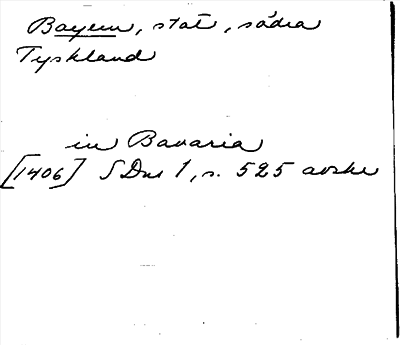 Bayern, stat, södra
Tyskland
in Bavaria
[1406] SDns 1, s. 525 avskr